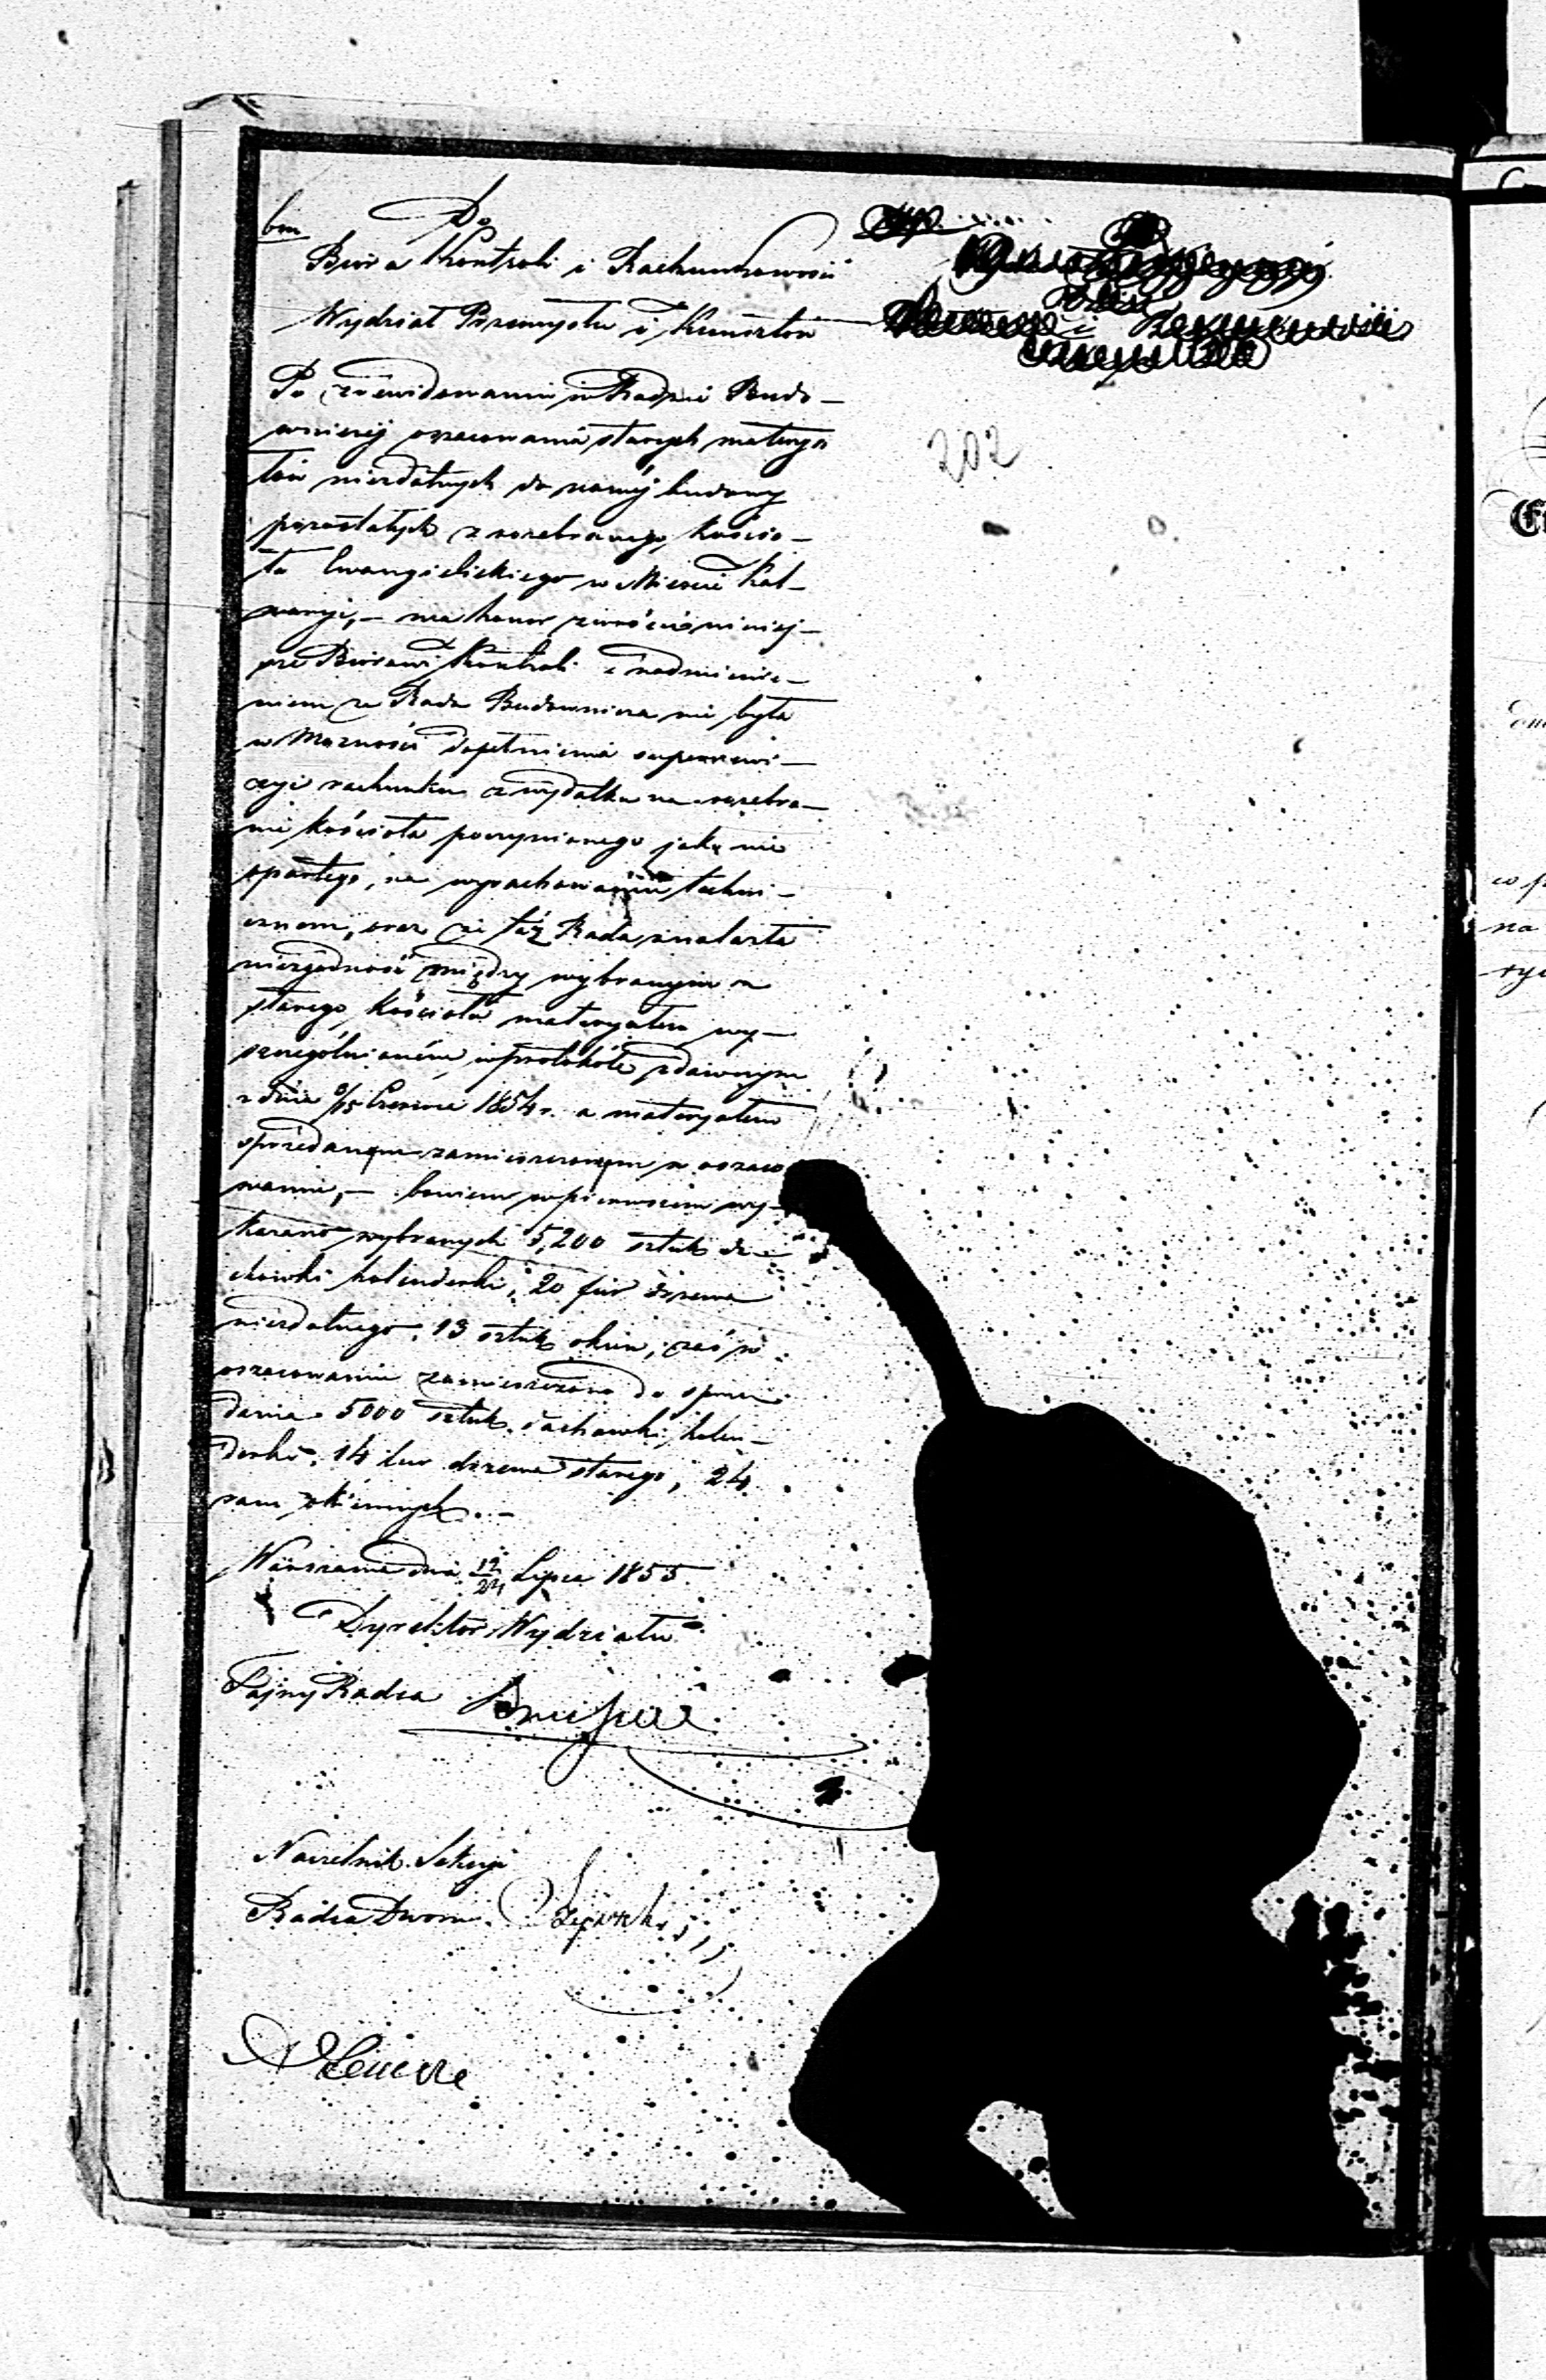 bm
Do
Biura Kontroli i Rachunkowości
Wydział Przemysłu i Kunsztów
Po zrewidowaniu w Radzie Budo-
wniczéj oszacowania starych materya
łów niezdatnych do nowéj budowy
pozostałych z rozebranego kościo-
ła Ewangielickiego w Mieście Kal-
waryi, - ma honor zwrócić niniej-
sze Biórowi Kontroli z nadmienie-
niem że Rada Budownicza nie była
w możności dopełnienia superrewi-
zyi rachunku z wydatku na rozebra-
nie kościoła poczynionego jako nie
opartego, na wyrachowaniu techni-
cznem, oraz że taż Rada znalazła
niezgodność między wybranym z
starego kościoła materyałem wy-
szczególnioném w protokóle zdawczym
z dnia /15 Czerwca 1854 r. a materyałem
sprzedanym zamieszczonym w oszaco
waniu, - bowiem w pierwszém wy-
kazano wybranych 5,200 sztuk da-
chówki holenderki, 20 fur drzewa
niezdatnego, 13 sztuk okien, zaś w
oszacowaniu zamieszczono do sprze
dania 5000 sztuk dachówki holen-
derki, 14 fur drzewa starego, 24
ram okiennych. -
Warszawa dnia 12/24 Lipca 1855
Dyrektor Wydziału
Tajny Radca
Naczelnik Sekcyi
Radca Dworu
202